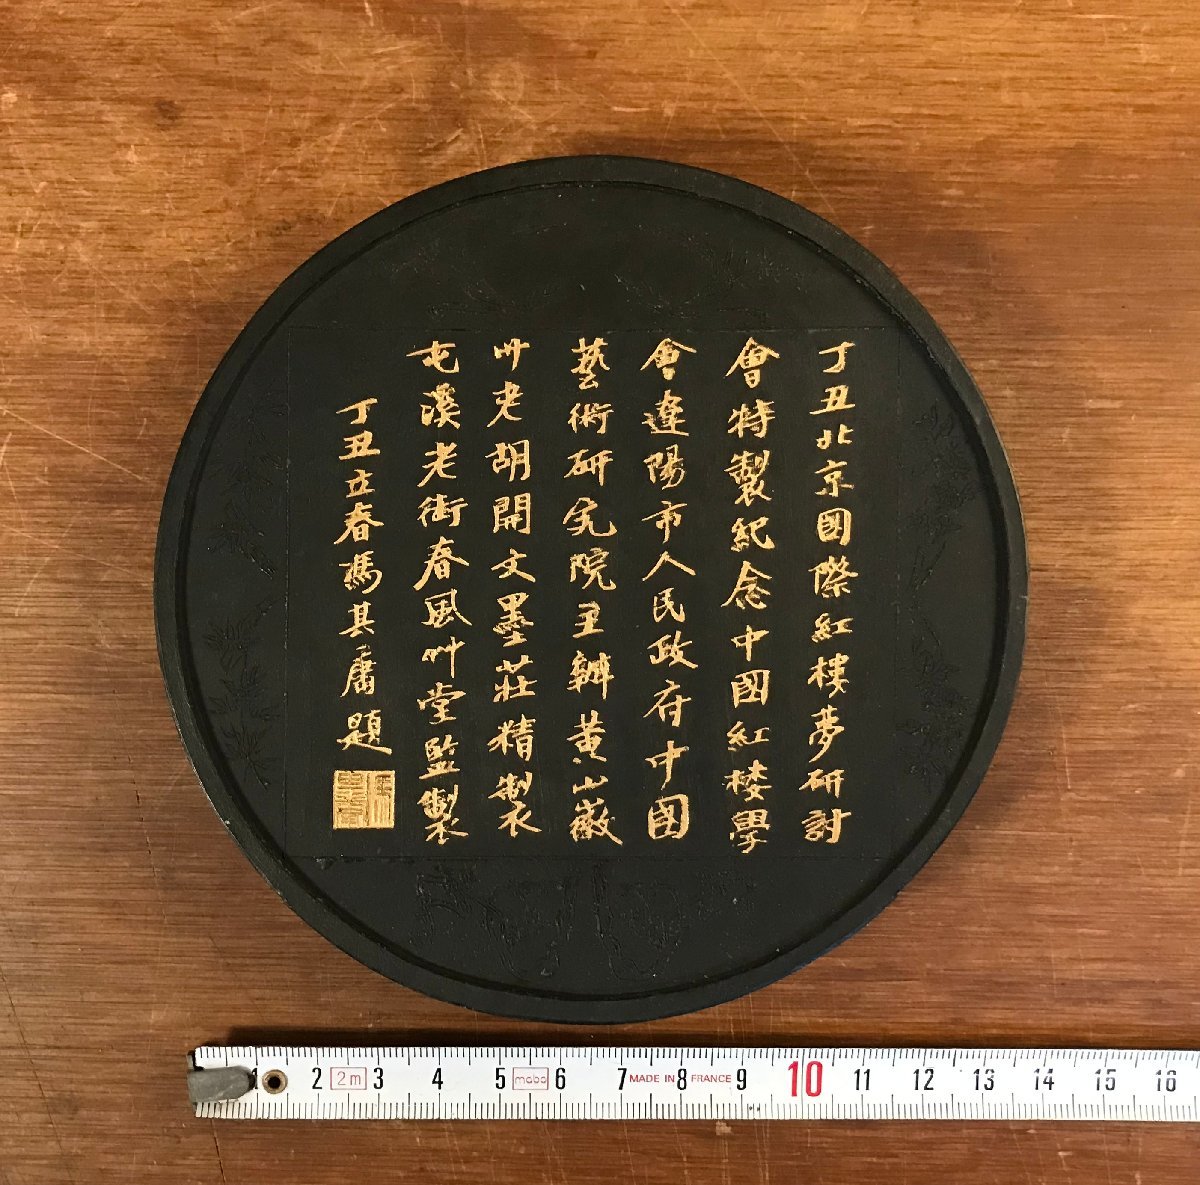 丁丑北京國際紅樓夢研討
會特製紀念中國紅楼學
會遼陽市人民政府中國
藝術研究院主辦黄山徽
州老胡開文墨莊精製
屯溪老街春風艸堂監製
丁丑立春馮其庸題
1 2 2m 3 4 5 mabo 6 7 MADE IN 8 FRANCE 9 10 11 12 13 14 15 16